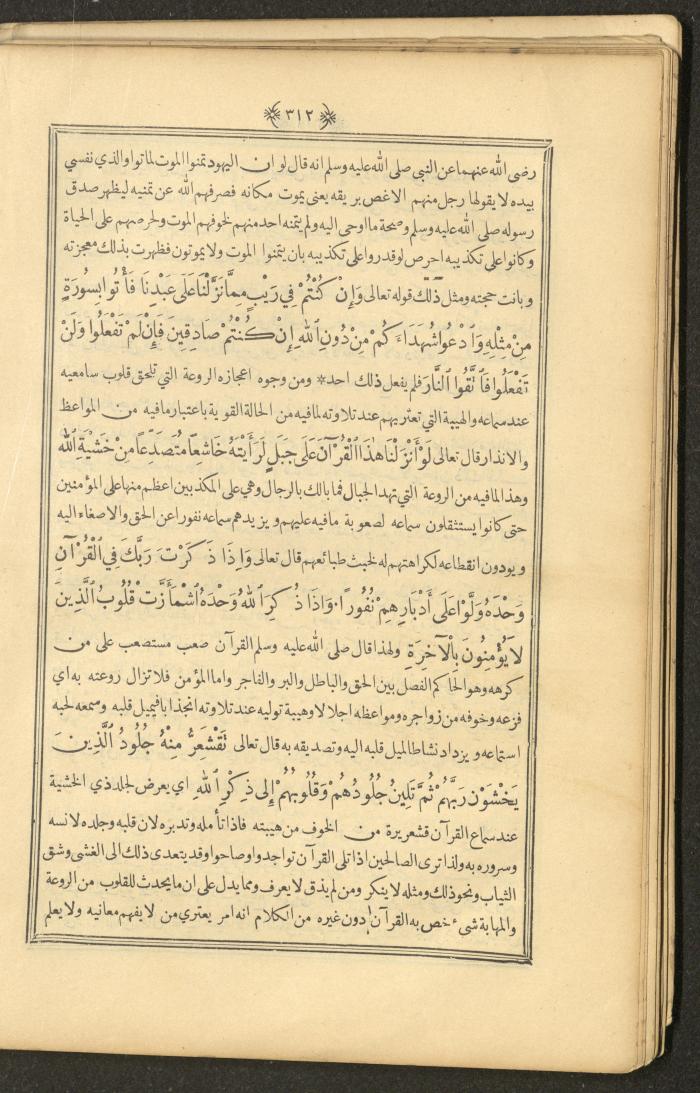 ٣١٢
رضى الله عنهما عن النبي صلى الله عليه وسلم انه قال لو ان اليهود تمنوا الموت لماتوا والذي نفسي
بيده لا يقولها رجل منهم الا غص بريقه يعنى يموت مكانه فصرفهم الله عن تمنيه ليظهر صدق
رسوله صلى الله عليه وسلم وصحة ما اوحى اليه ولم يتمنه احد منهم لخوفهم الموت ولحرصهم على الحياة
وكانوا على تكذيبه احرص لو قدروا على تكذيبه بان يتمنوا الموت ولا يموتون فظهرت بذلك معجزته
وبانت حجته ومثل ذلك قوله تعالى وَإِنْ كُنْتُمْ فِي رَيْبٍ مِمَّا نَزَّلْنَا عَلَى عَبْدِنَا فَأْتُوا بِسُورَةٍ
مِنْ مِثْلِهِ وَٱدْعُوا شُهَدَاءَكُمْ مِنْ دُونِ ٱللهِ إِنْ كُنْتُمْ صَادِقِينَ فَإِنْ لَمْ تَفْعَلُوا وَلَنْ
تَفْعَلُوا فَٱتَّقُوا ٱلنَّارَ فلم يفعل ذلك احد * ومن وجوه اعجازه الروعة التي تلحق قلوب سامعيه
عند سماعه والهيبة التي تعتريهم عند تلاوته لما فيه من الحالة القوية باعتبار ما فيه من المواعظ
والانذار قال تعالى لَوْ أَنْزَلْنَا هٰذَا ٱلْقُرْآنَ عَلَى جَبَلٍ لَرَأَيْتَهُ خَاشِعًا مُتَصَدِّعًا مِنْ خَشْيَةِ ٱللهِ
وهذا لما فيه من الروعة التي تهد الجبال فما بالك بالرجال وهي على المكذبين اعظم منها على المؤمنين
حتى كانوا يستثقلون سماعه لصعوبة ما فيه عليهم ويزيدهم سماعه نفورا عن الحق والاصغاء اليه
ويودون انقطاعه لكراهتهم له لخبث طبائعهم قال تعالى وَإِذَا ذَكَرْتَ رَبَّكَ فِي ٱلْقُرْآنِ
وَحْدَهُ وَلَّوْا عَلَى أَدْبَارِهِمْ نُفُورًا. وَإِذَا ذُكِرَ ٱللهُ وَحْدَهُ ٱشْمَأَزَّتْ قُلُوبُ ٱلَّذِينَ
لَا يُؤْمِنُونَ بِٱلْآخِرَةِ ولهذا قال صلى الله عليه وسلم القرآن صعب مستصعب على من
كرهه وهو الحاكم الفصل بين الحق والباطل والبر والفاجر واما المؤمن فلا تزال روعته به اي
فزعه وخوفه من زواجره ومواعظه اجلالا وهيبة توليه عند تلاوته انجذابا فيميل قلبه وسمعه لحبه
استماعه ويزداد نشاطا لميل قلبه اليه وتصديقه به قال تعالى تَقْشَعِرُّ مِنْهُ جُلُودُ ٱلَّذِينَ
يَخْشَوْنَ رَبَّهُمْ ثُمَّ تَلِينُ جُلُودُهُمْ وَقُلُوبُهُمْ إِلَى ذِكْرِ ٱللهِ اي يعرض لجلد ذي الخشية
عند سماع القرآن قشعريرة من الخوف من هيبته فاذا تأمله وتدبره لان قلبه وجلده لانسه
وسروره به ولذا ترى الصالحين اذا تلى القرآن تواجدوا وصاحوا وقد يتعدى ذلك الى الغشى وشق
الثياب ونحو ذلك ومثله لا ينكر ومن لم يذق لا يعرف ومما يدل على ان ما يحدث للقلوب من الروعة
والمهابة شيء خص به القرآن دون غيره من الكلام انه امر يعتري من لا يفهم معانيه ولا يعلم